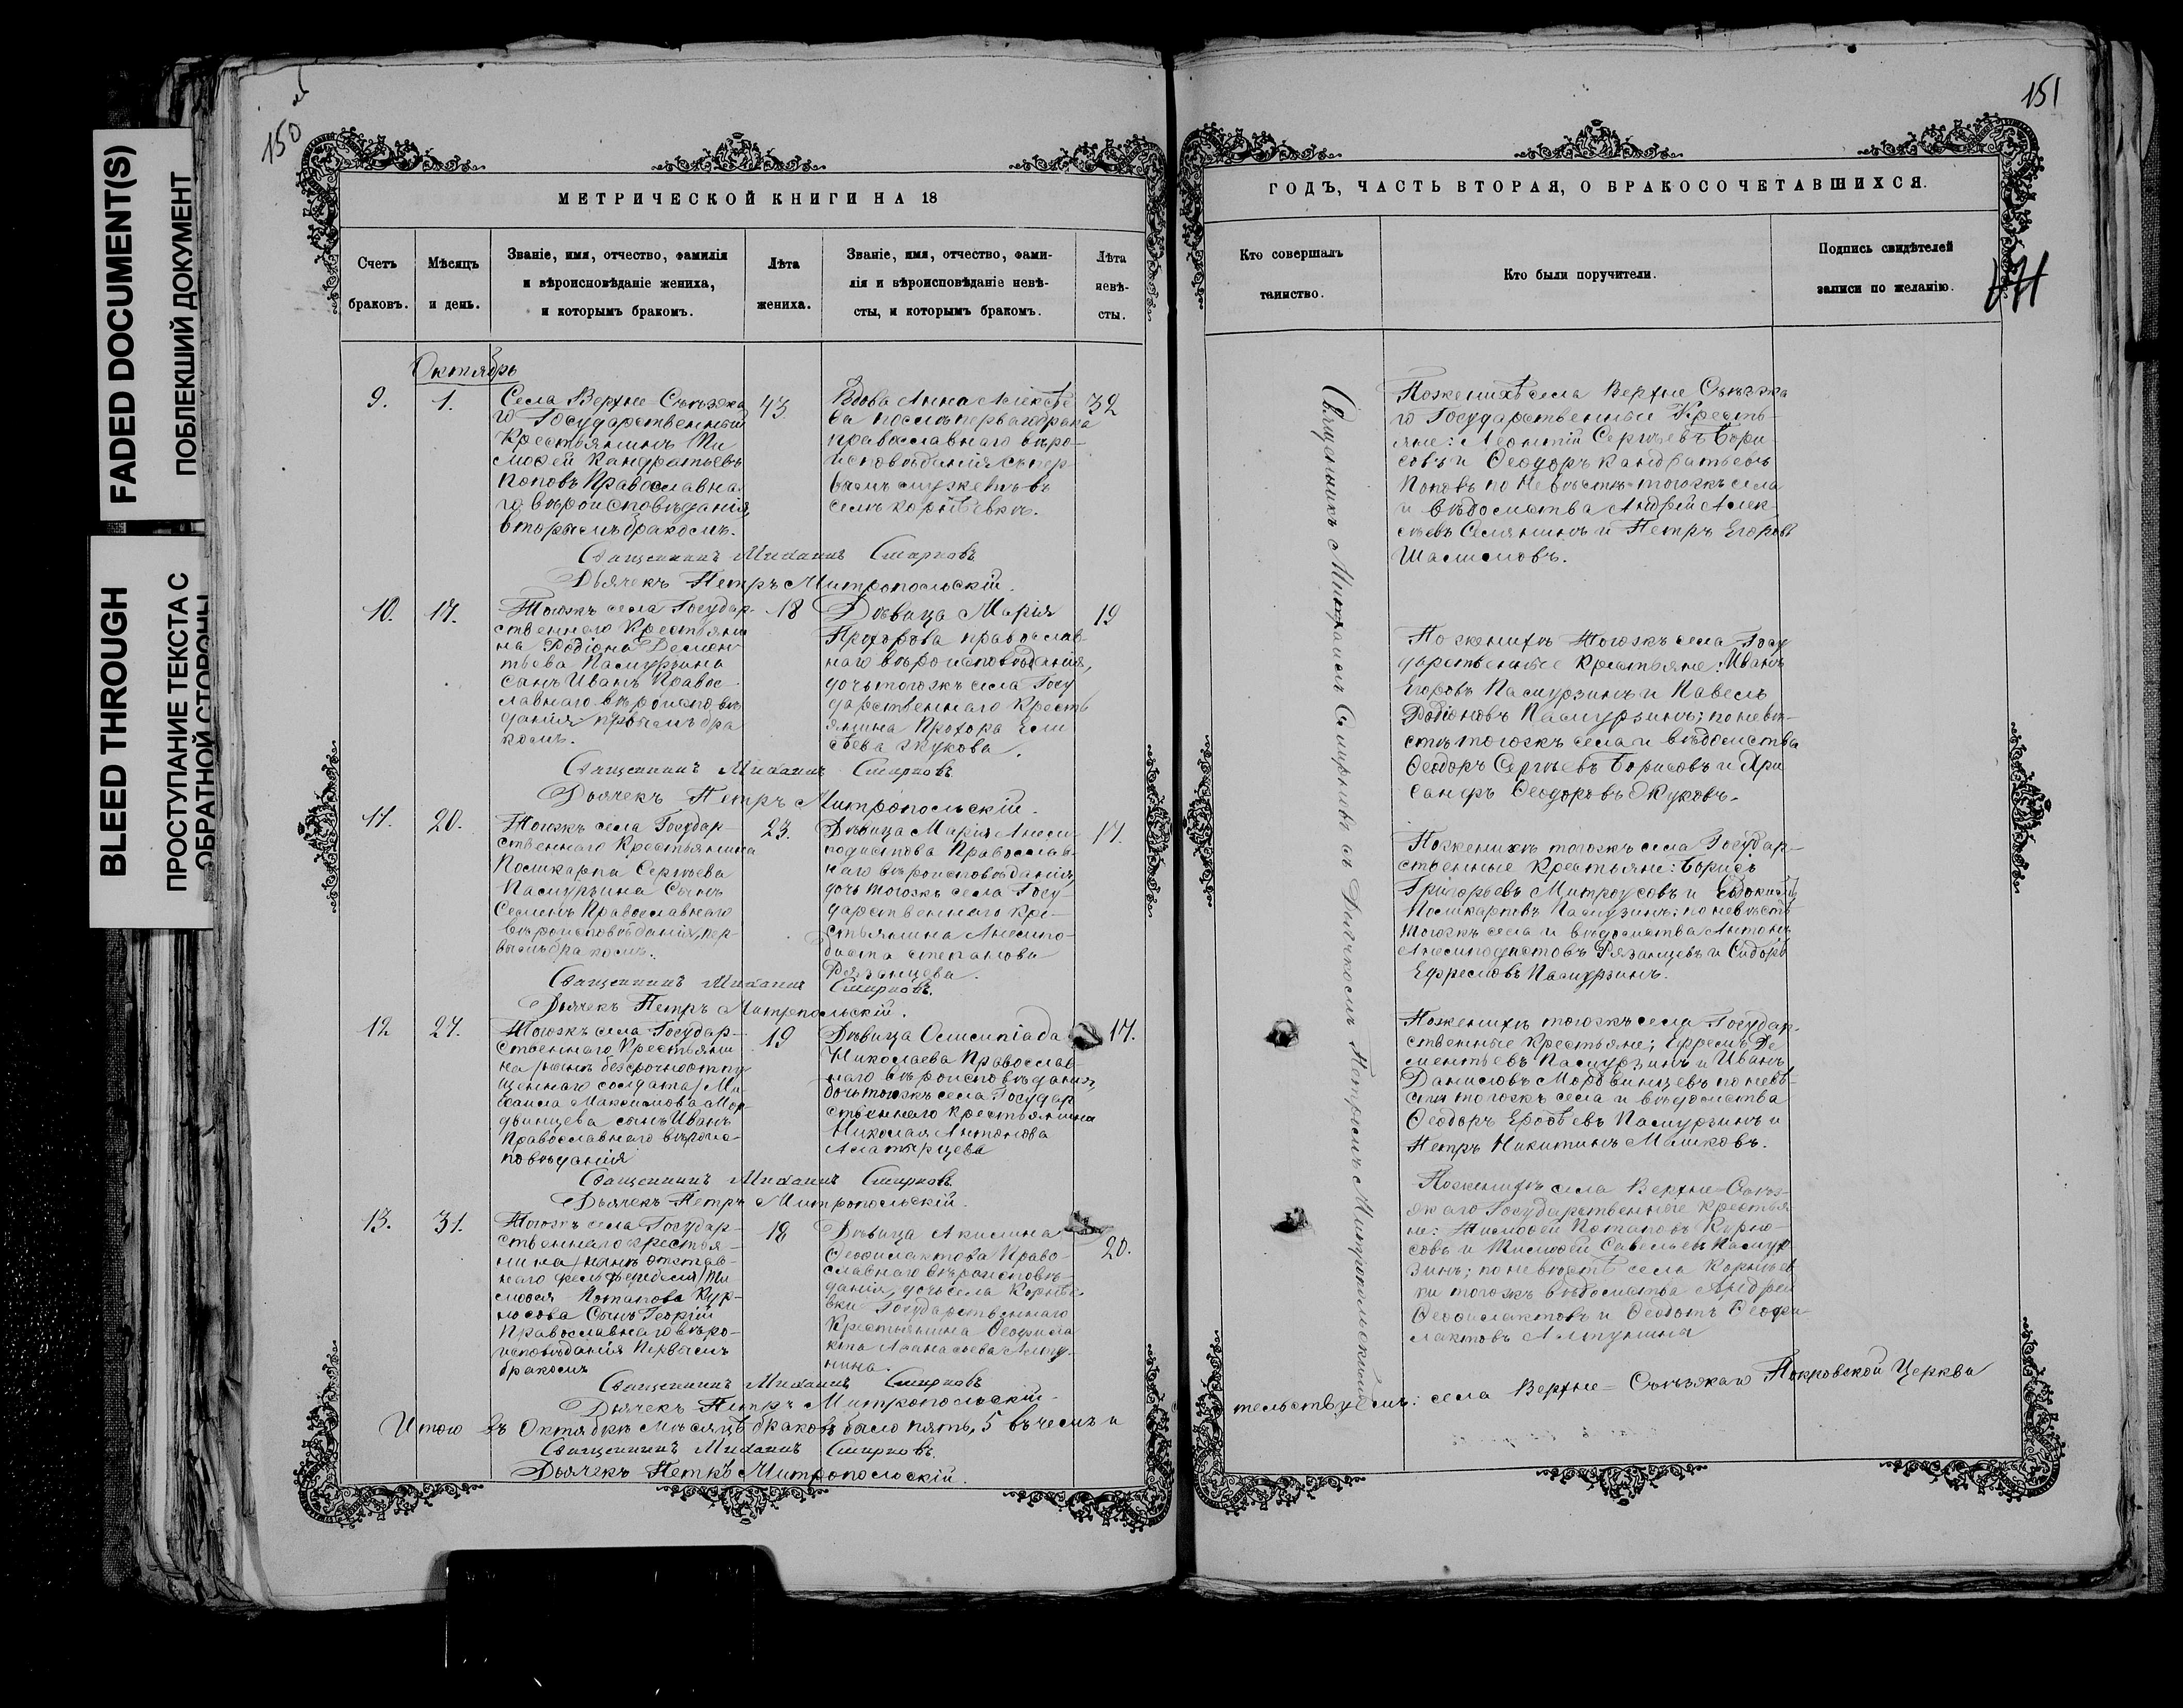 FADED DOCUMENT(S)
ПОБЛЕКШИЙ ДОКУМЕНТ
BLEED THROUGH
ПРОСТУПАНИЕ ТЕКСТА С
ОБРАТНОЙ СТОРОНЫ
150
МЕТРИЧЕСКОЙ КНИГИ НА 18
Счетъ
браковъ.
Мѣсяцъ
и день.
Званіе, имя, отчество, фамилія
и вѣроисповѣданіе жениха,
и которымъ бракомъ.
Лѣта
жениха.
Званіе, имя, отчество, фами-
лія и вѣроисповѣданіе невѣ-
сты, и которымъ бракомъ.
Лѣта
невѣ-
сты.
Октябрь
9.
1.
Села Верхне Съѣзжа
го Государственный
Крестьянинъ Ти
мофей Кандратьевъ
Поповъ Православна
го вѣроисповѣданія,
вторымъ бракомъ.
43
Вдова Анна Алексѣе
ва послѣ перваго брака
православнаго вѣро-
исповѣданія съ пер
вымъ мужемъ въ
селѣ Корнѣевкѣ.
32
Священникъ Михаилъ Смирновъ
Дьячекъ Петръ Митропольскій.
10.
17.
Тогожъ села Государ-
ственнаго Крестьяни
на Родіона Демен
тьева Памурзина
сынъ Иванъ Правос
лавнаго вѣроисповѣ
данія первымъ бра
комъ.
18
Дѣвица Марія
Прохорова православ
наго вѣроисповѣданія,
дочь тогожъ села Госу
дарственнаго Кресть
янина Прохора Ели
сѣева Жукова.
19
Священникъ Михаилъ Смирновъ
Дьячекъ Петръ Митропольскій.
11.
20.
Тогожъ села Государ-
ственнаго Крестьянина
Поликарпа Сергѣева
Памурзина Сынъ
Семенъ Православнаго
вѣроисповѣданія, пер
вымъ бракомъ.
23.
Дѣвица Марія Анем-
подистова Православ-
наго вѣроисповѣданія,
дочь тогожъ села Госу-
дарственнаго Кре-
стьянина Анемпо-
диста Степанова
Рязанцева.
17.
Священникъ Михаилъ Смирновъ.
Дьячекъ Петръ Митропольскій.
12
27.
Тогожъ села Государ-
ственнаго Крестьяни
на /нынѣ безсрочноотпу
щеннаго солдата/ Ми
хаила Максимова Мор
двинцева сынъ Иванъ
Православнаго вѣроис-
повѣданія
19
Дѣвица Олимпіада
Николаева Православ-
наго вѣроисповѣданія,
дочь тогожъ села Государ
ственнаго Крестьянина
Николая Антонова
Алатырцева
17.
Священникъ Михаилъ Смирновъ
Дьячекъ Петръ Митропольскій.
13.
31.
Тогожъ села Государ-
ственнаго крестья-
нина /нынѣ отстав-
наго фельдфебеля/ Ти
мофея Потапова Кур-
носова Сынъ Георгій
Православнаго вѣро-
исповѣданія Первымъ
бракомъ
18
Дѣвица Акилина
Феофилактова Право-
славнаго вѣроисповѣ-
данія, дочь села Корнѣе
вки Государственнаго
Крестьянина Феофила
кта Афанасьева Алту-
нина.
20.
Священникъ Михаилъ Смирновъ
Дьячекъ Петръ Митропольскій.
Итого въ Октябрѣ Мѣсяцѣ браковъ было пять, 5 въ чемъ и
Священникъ Михаилъ Смирновъ.
Дьячекъ Петръ Митропольскій.
151
ГОДЪ, ЧАСТЬ ВТОРАЯ, О БРАКОСОЧЕТАВШИХСЯ.
Кто совершалъ
таинство.
Кто были поручители.
Подпись свидѣтелей
записи по желанію.
Священникъ Михаилъ Смирновъ съ Дьячкомъ Петромъ Митропольскимъ
По женихѣ села Верхне Съѣзжа
го Государственные Кресть-
яне: Леонтій Сергѣевъ Бори
совъ и Феодоръ Кандратьевъ
Поповъ по Невѣстѣ тогожъ села
и вѣдомства Андрей Алек
сѣевъ Селянинъ и Петръ Егоровъ
Шалимовъ.
По женихѣ тогожъ села Госу
дарственные Крестьяне: Иванъ
Егоровъ Памурзинъ и Павелъ
Родіоновъ Памурзинъ; по невѣ-
стѣ тогожъ села и вѣдомства
Феодоръ Сергѣевъ Борисовъ и Хри
санфъ Феодоровъ Жуковъ.
По женихѣ тогожъ села Государ-
ственные Крестьяне: Борисъ
Григорьевъ Митроусовъ и Евдокимъ
Поликарповъ Памузинъ; по невѣстѣ
тогожъ села и вѣдомства Антонъ
Анемподистовъ Рязанцевъ и Сидоръ
Ефремовъ Памурзинъ.
По женихѣ тогожъ села Государ-
ственные Крестьяне; Ефремъ Де
ментьевъ Памурзинъ и Иванъ
Даниловъ Мордвинцевъ по невѣ-
стѣ тогожъ села и вѣдомства
Феодоръ Ерофѣевъ Памурзинъ и
Петръ Никитинъ Машковъ.
По женихѣ села Верхне-Съѣз-
жаго Государственные Крестья
не: Тимофей Потаповъ Курно-
совъ и Тимофей Савельевъ Памур
зинъ; по невѣстѣ села Корнѣев
ки тогожъ вѣдомства Андрей
Феофилактовъ и Феодотъ Феофи-
лактовъ Алтунины
тельствуемъ: села Верхне-Съѣзжаго Покровской Церкви